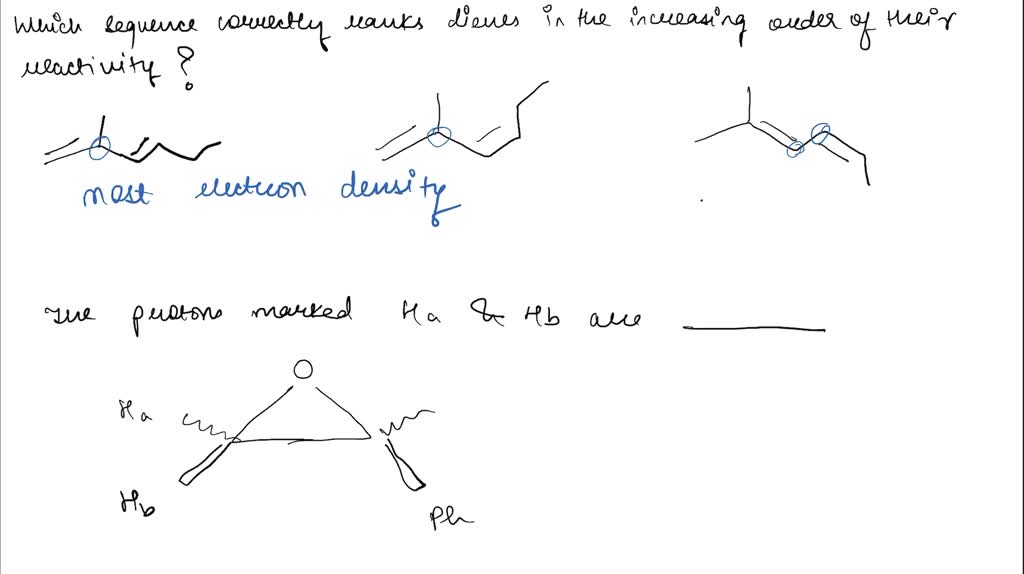 Which sequence correctly ranks dienes in the increasing order of their
reactivity ?
most electron density
The protons marked Ha & Hb are ______
O
Ha
Hb
Ph